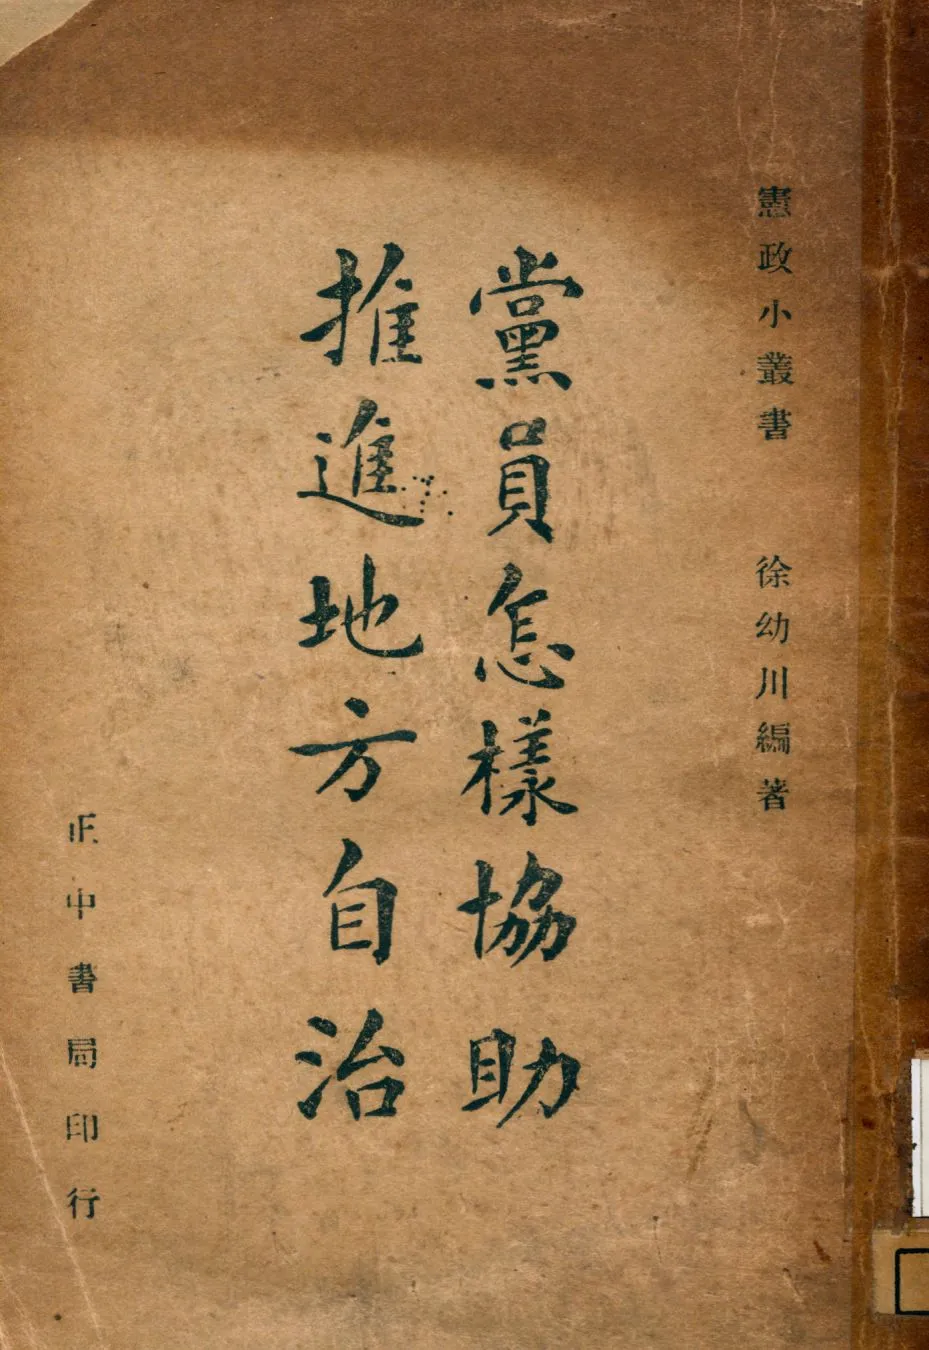 憲政小叢書 徐幼川編著
黨員怎樣協助
推進地方自治
正中書局印行